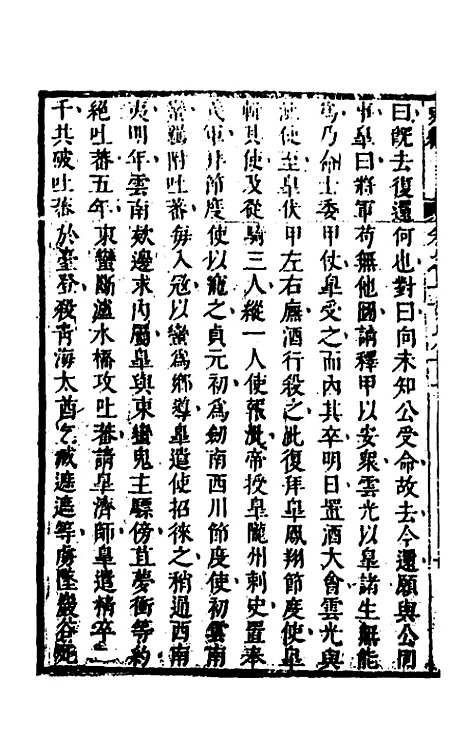 曰既去復還何也對曰向未知公受命故去今還願與公同
事臯曰將軍苟無他圖請釋甲以安衆雲光以臯諸生無能
爲乃命士委甲仗臯受之而內其卒明日置酒大會雲光與
使至臯伏甲左右廡酒行殺之泚復拜臯鳳翔節度使臯
斬其使及從騎三人縱一人使報泚帝授臯隴州刺史置奉
義軍拜節度使以寵之貞元初爲劒南西川節度使初雲南
羈附吐蕃每入冦以蠻爲鄉導臯遣使招徠之稍通西南
夷明年雲南欵邊求內屬臯與東蠻鬼主驃傍苴夢衝等約
絶吐蕃五年東蠻斷瀘水橋攻吐蕃請臯濟師臯遣精卒
千共破吐蕃於臺登殺靑海大酋乞臧遮遮等虜墜巖谷死